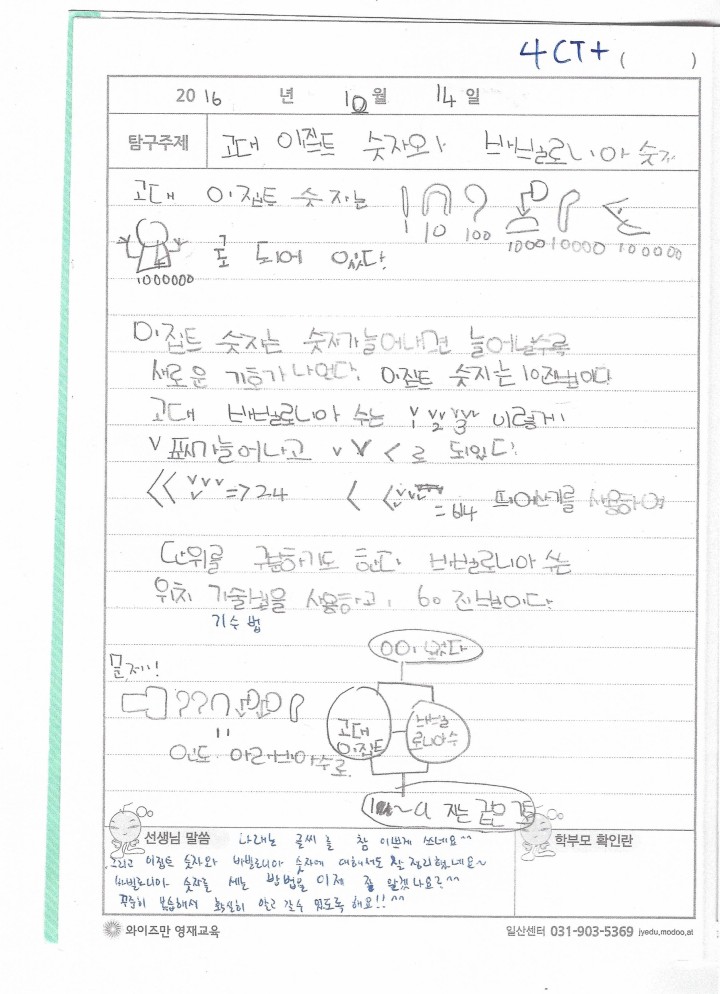 4 CT+ ( )
2016 년 10월 14일
탐구주제 고대 이집트 숫자와 바빌로니아 숫자
고대 이집트 숫자는
1 10 100 1000 10000 100000
1000000 로 되어 있다.
이집트 숫자는 숫자가늘어나면 늘어날수록
새로운 기호가 나온다. 이집트 숫자는 10진법이다
고대 바빌로니아 수는 v vv vvv 이렇게
1 2 3
v 표시가늘어나고 v v < 로 되있다.
<< vvv v => 24 < <vvv = 64 띄어쓰기를 사용하여
단위를 구분하기도 한다 바빌로니아 수는
위치 기술법을 사용하고, 60 진법이다
기수 법
문제!
00이 없다
고대 이집트
바빌로니아수
인도 아라비아수로.
지는 같은 것
선생님 말씀
학부모 확인란
나래는 글씨를 참 이쁘게 쓰네요^^
그리고 이집트 숫자와 바빌로니아 숫자에 대해서도 잘 정리했네요~
바빌로니아 숫자를 세는 방법을 이제 잘 알겠나요?^^
꾸준히 복습해서 확실히 알고 갈수 있도록 해요!!^^
와이즈만 영재교육
일산센터 031-903-5369 jyedu.modoo.at